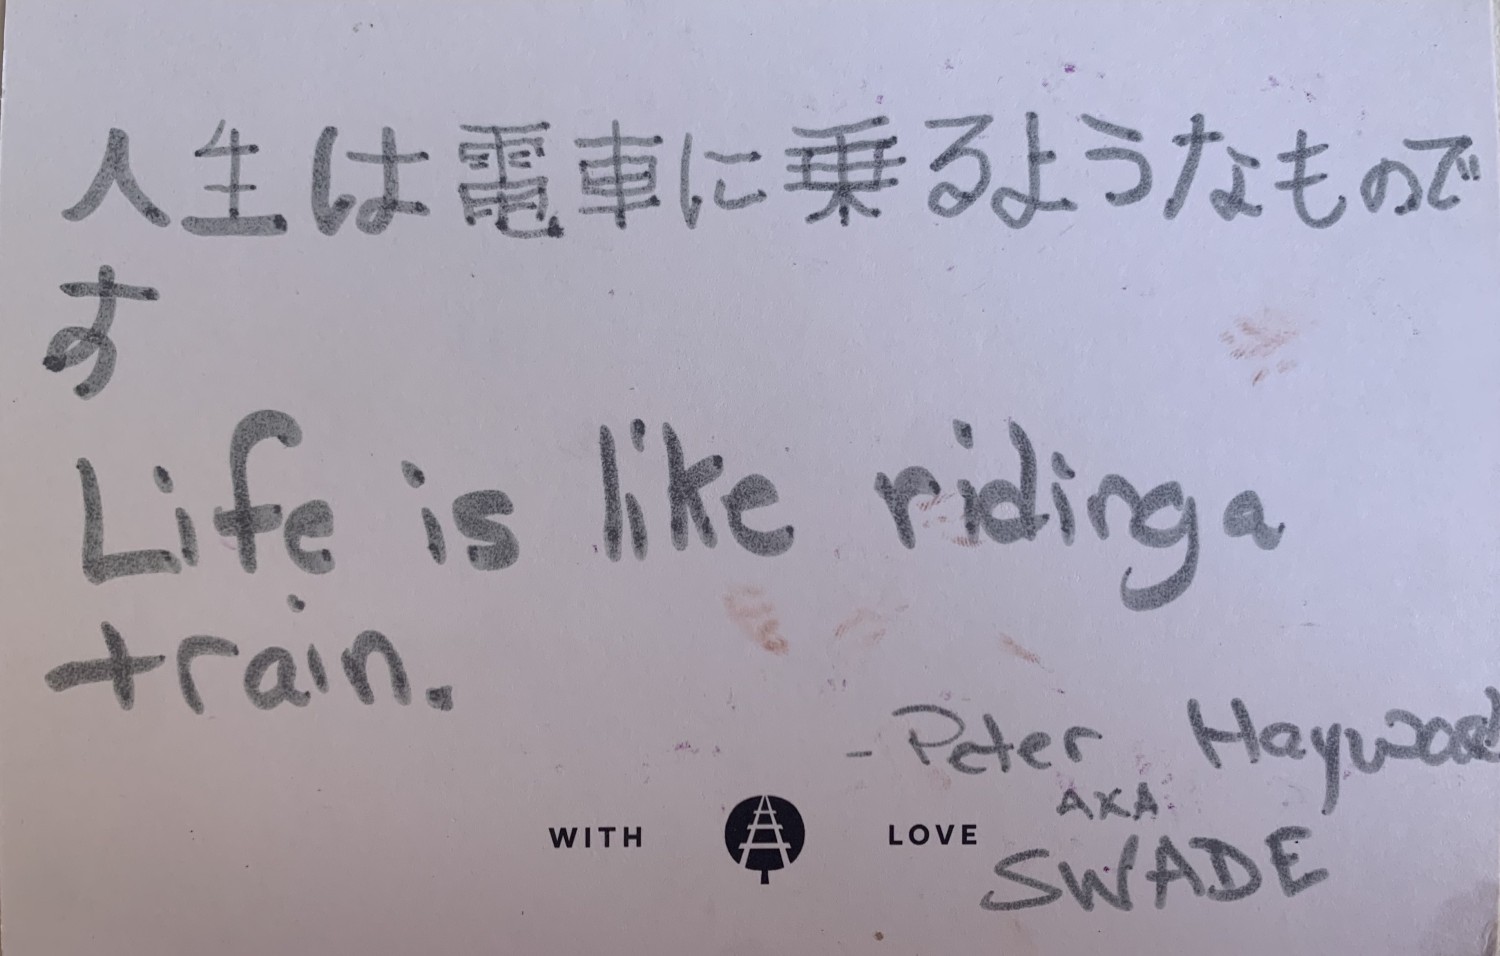 人生は電車に乗るようなもので
す
Life is like riding a
train.
- Peter Haywood
AKA
SWADE
WITH LOVE